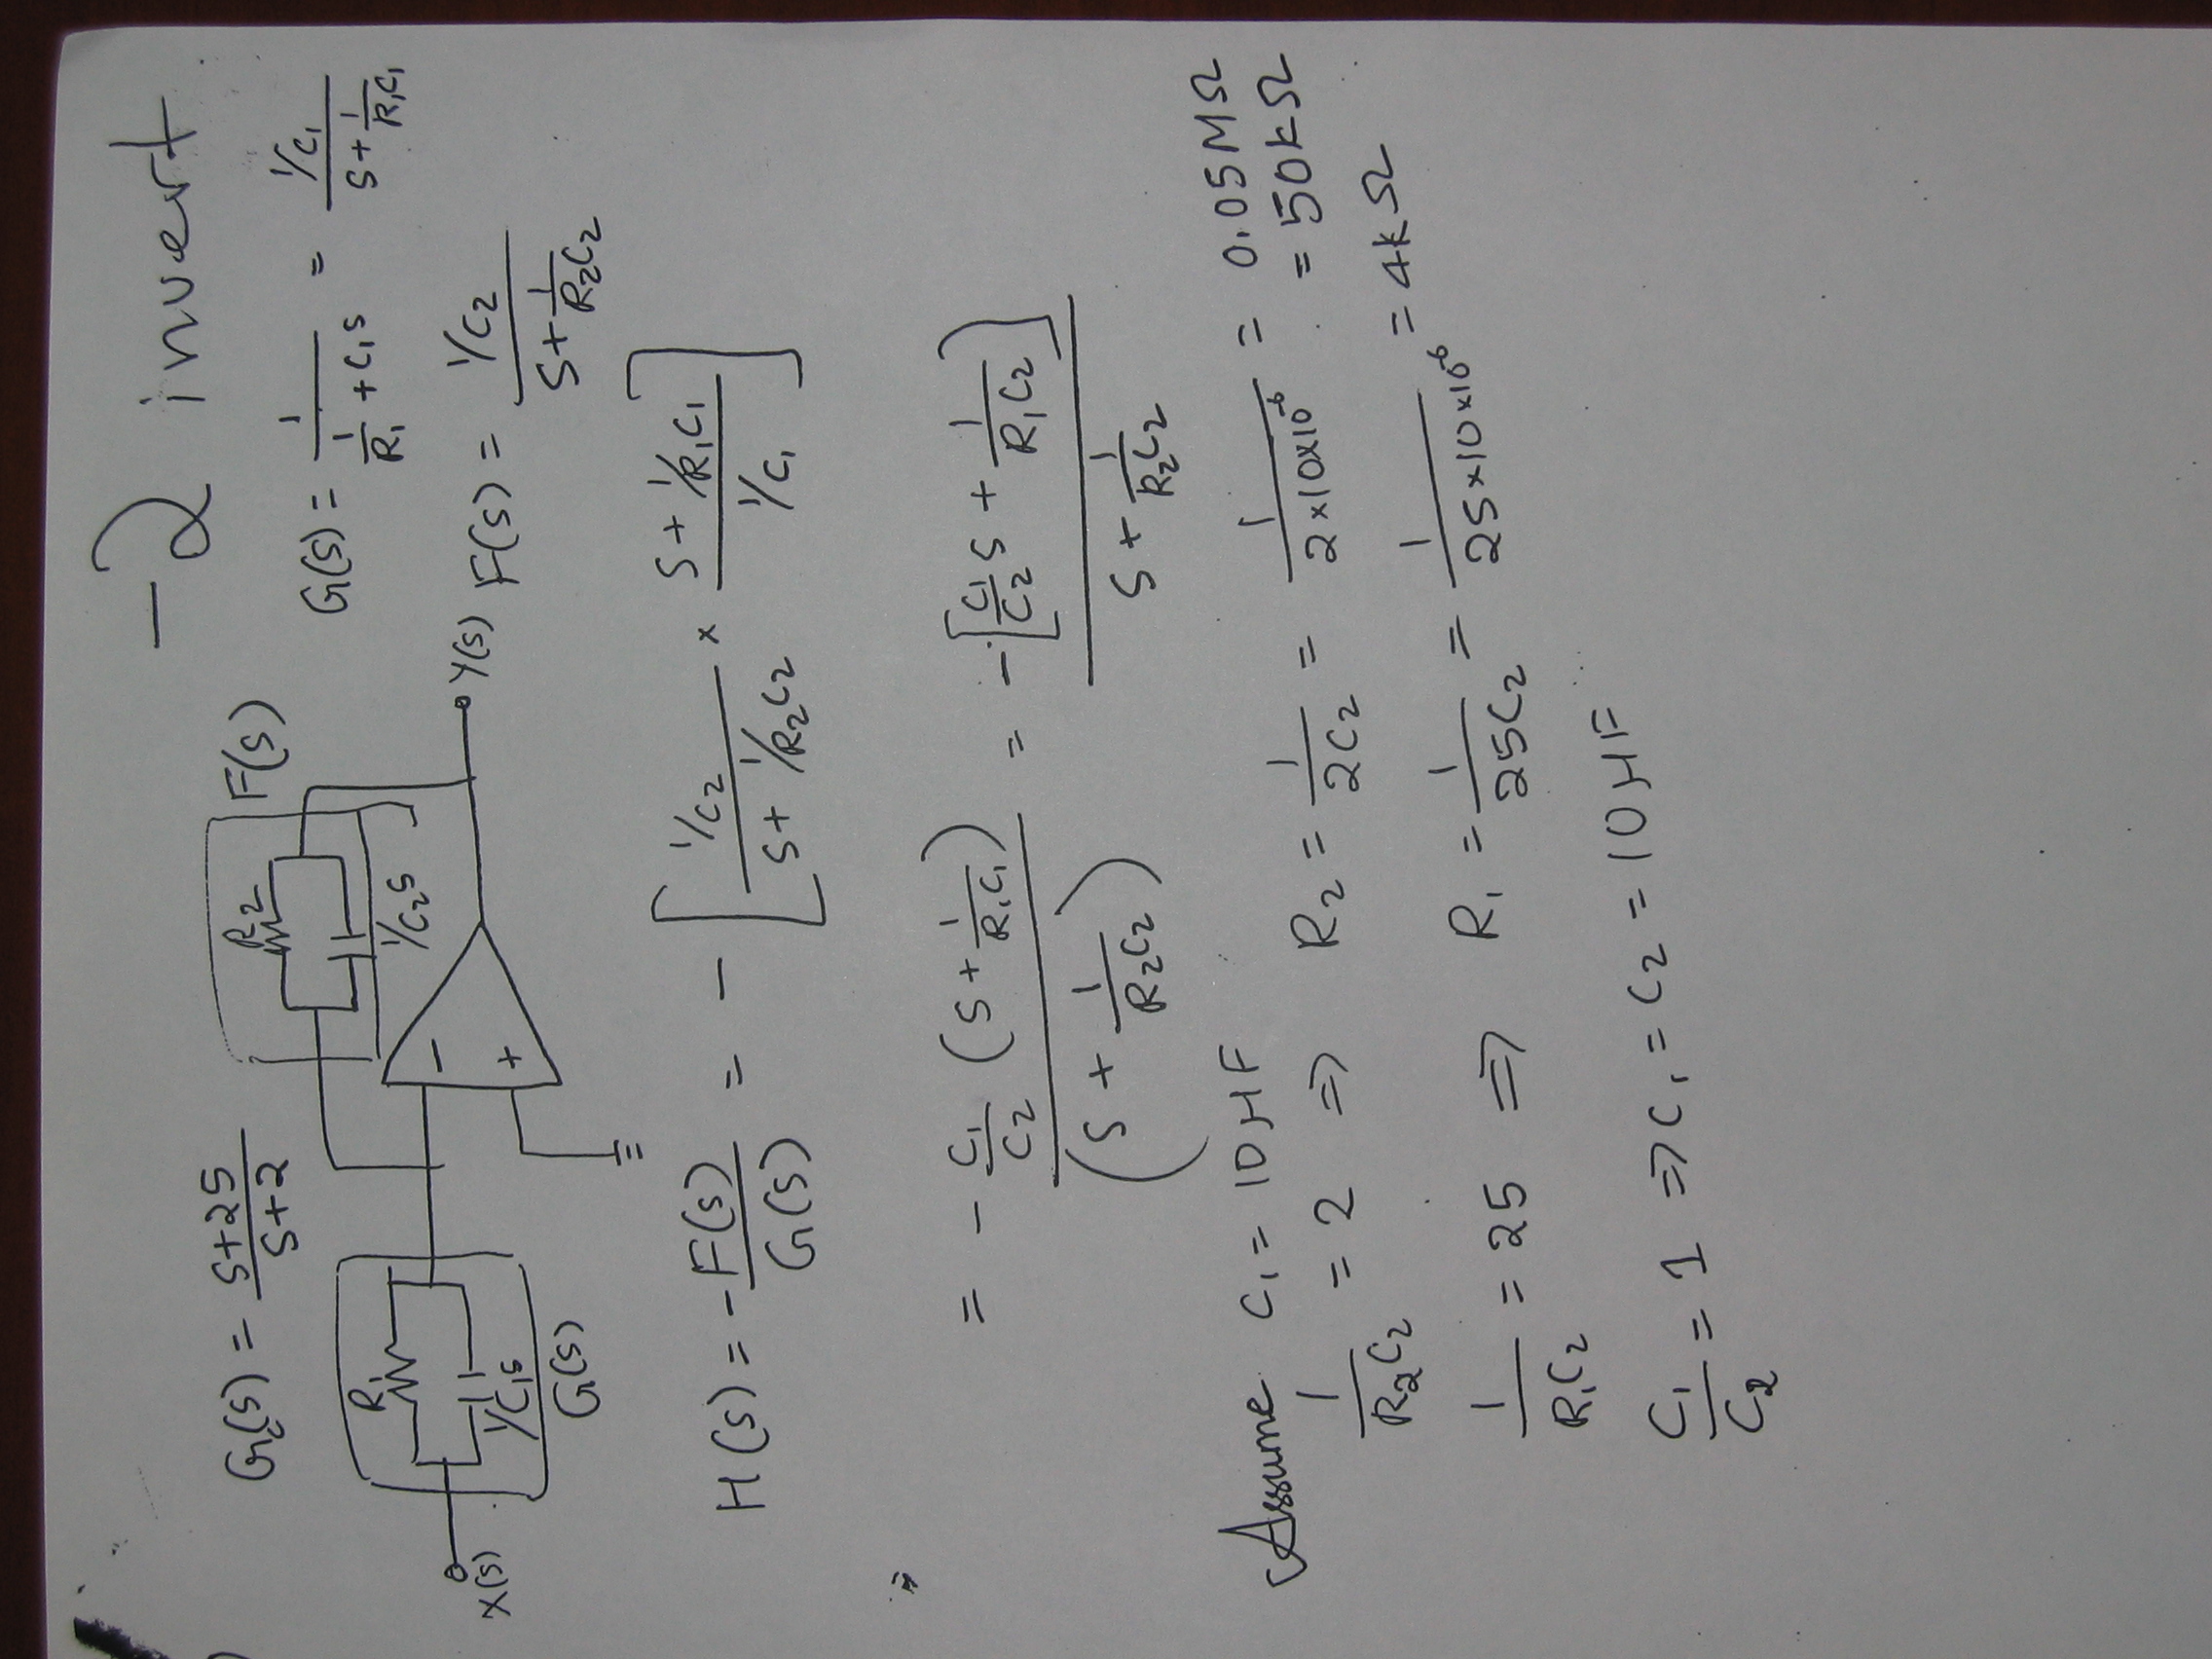 -2 invert
Gc(s) = (s+25)/(s+2)
F(s)
R2
1/C2s
R1
1/C1s
G(s)
-
+
X(s)
Y(s)
G(s) = 1/(1/R1 + C1s) = (1/C1)/(s + 1/R1C1)
F(s) = (1/C2)/(s + 1/R2C2)
H(s) = -F(s)/G(s) = -[(1/C2)/(s + 1/R2C2) × (s + 1/R1C1)/(1/C1)]
= -C1/C2 (s + 1/R1C1)/(s + 1/R2C2) = -[C1/C2 s + 1/R1C2]/(s + 1/R2C2)
Assume C1 = 10μF
1/R2C2 = 2 ⇒ R2 = 1/2C2 = 1/(2×10×10^-6) = 0.05MΩ
= 50kΩ
1/R1C2 = 25 ⇒ R1 = 1/25C2 = 1/(25×10×10^-6) = 4kΩ
C1/C2 = 1 ⇒ C1 = C2 = 10μF